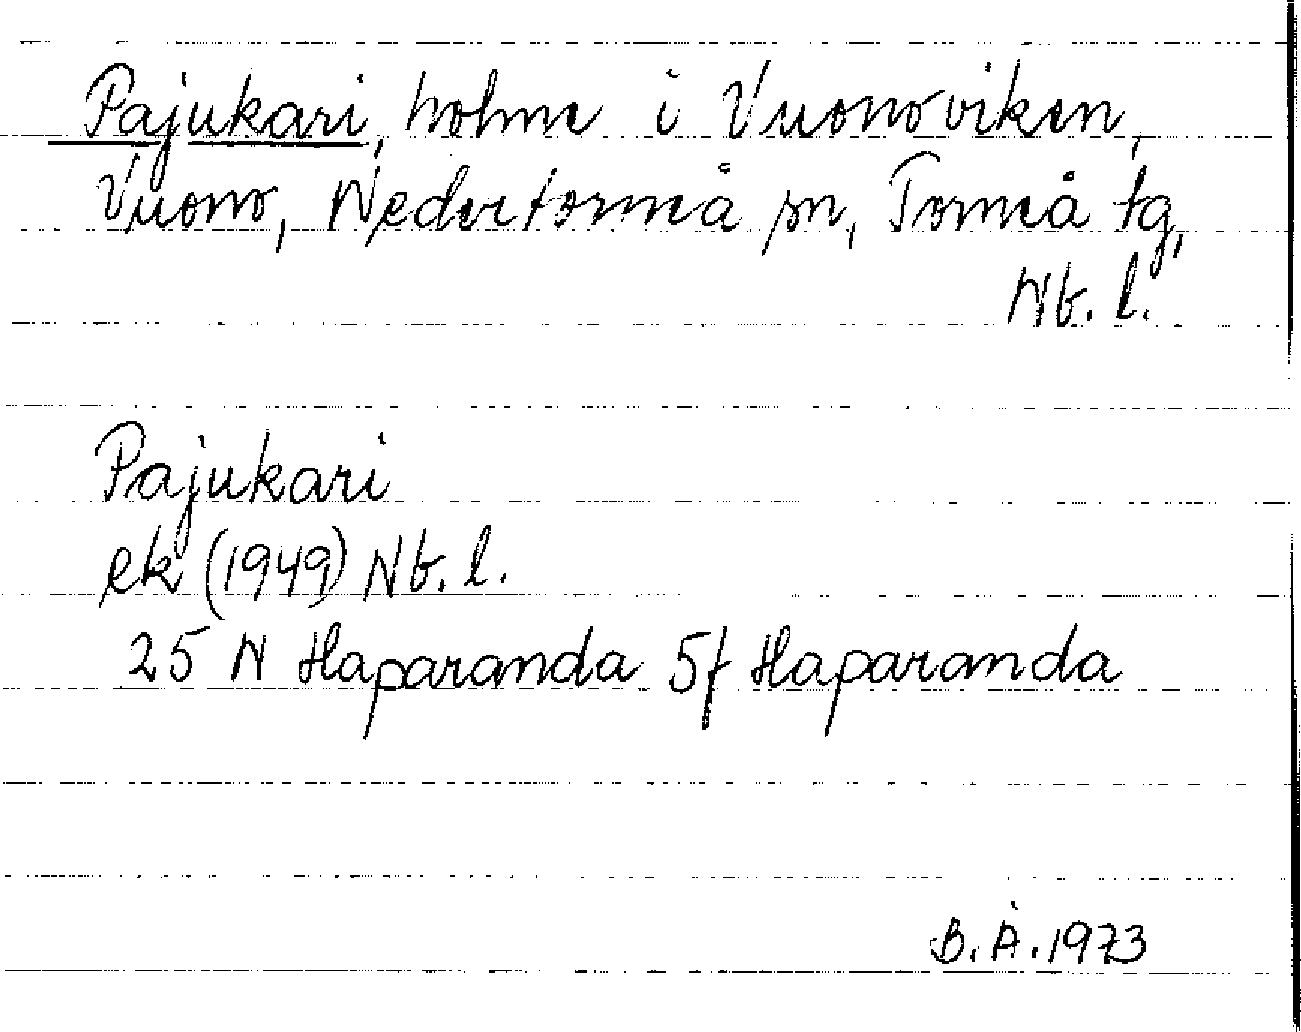 Pajukari, holme i Vuonoviken,
Vuono, Nedertorneå sn, Torneå tg,
Nb. l.
Pajukari
ek (1949) Nb. l.
25 N Haparanda 5f Haparanda
B. Å. 1973